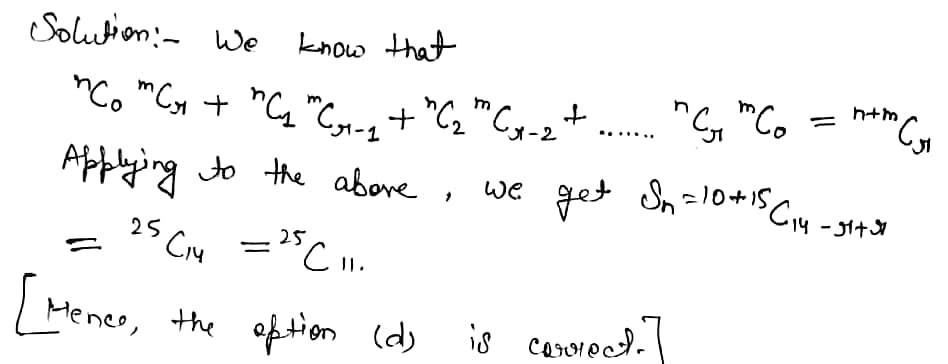 Solution:- We know that
ⁿC₀ ᵐCᵣ + ⁿC₁ ᵐCᵣ₋₁ + ⁿC₂ ᵐCᵣ₋₂ + ....... ⁿCᵣ ᵐC₀ = ⁿ⁺ᵐCᵣ
Applying to the above, we get Sₙ = ¹⁰⁺¹⁵C₁₄₋ᵣ₊ᵣ
= ²⁵C₁₄ = ²⁵C₁₁.
[Hence, the option (d) is correct.]